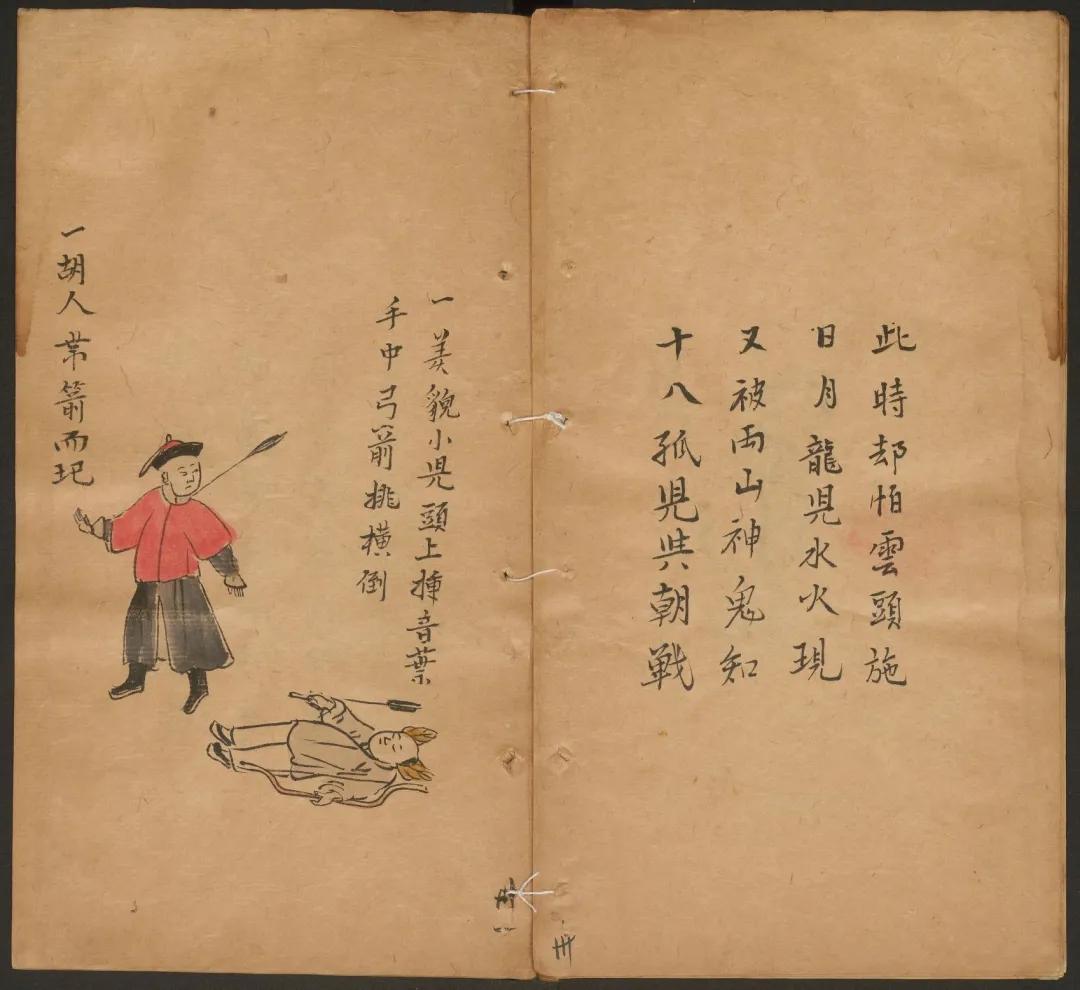 此時却怕雲頭施
日月龍児水火現
又被両山神鬼知
十八孤児共朝戰
卅
一美貌小児頭上挿音葉
手中弓箭挑横倒
一胡人帯箭而玘
卅一